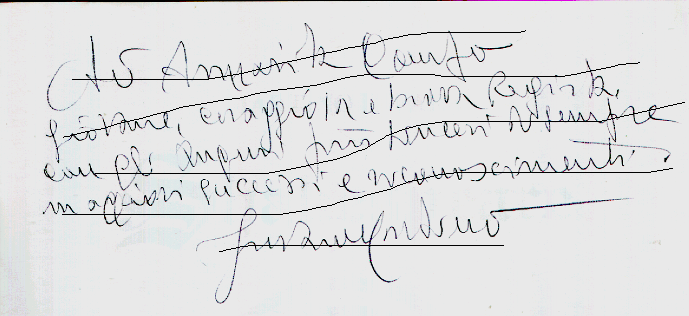 Ad Annarita Campo
giovane, coraggiosa e brava Regista,
con gli Auguri più sinceri di sempre
maggiori successi e riconoscimenti.